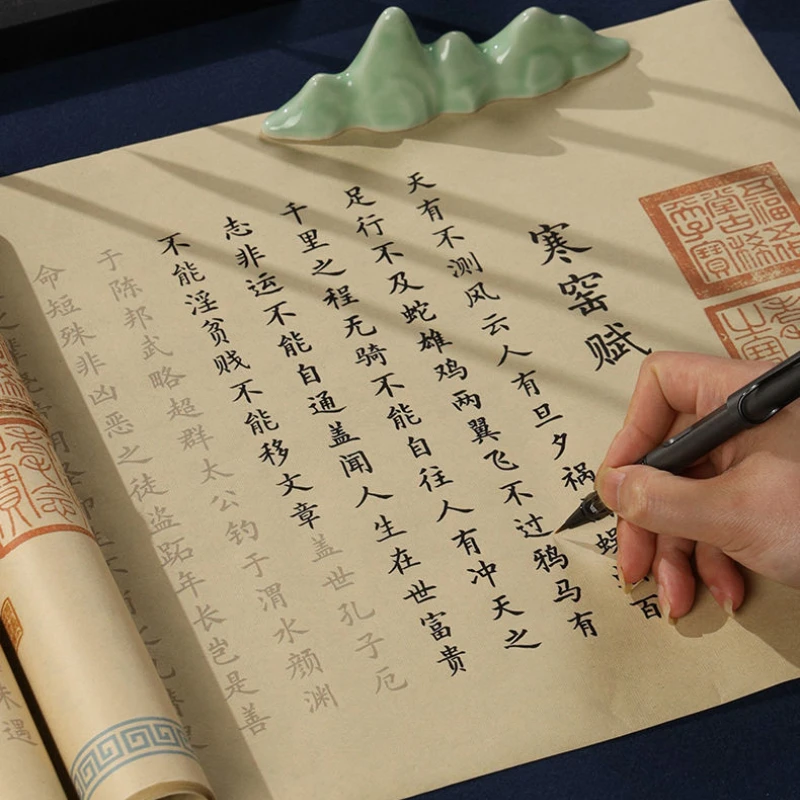 五福五代堂古稀天子寶
寒窑赋
天有不测风云人有旦夕祸蜈百
足行不及蛇雄鸡两翼飞不过鸦马有
千里之程无骑不能自往人有冲天之
志非运不能自通盖闻人生在世富贵
不能淫贫贱不能移文章盖世孔子厄
于陈邦武略超群太公钓于渭水颜渊
命短殊非凶恶之徒盗跖年长岂是善
未遇